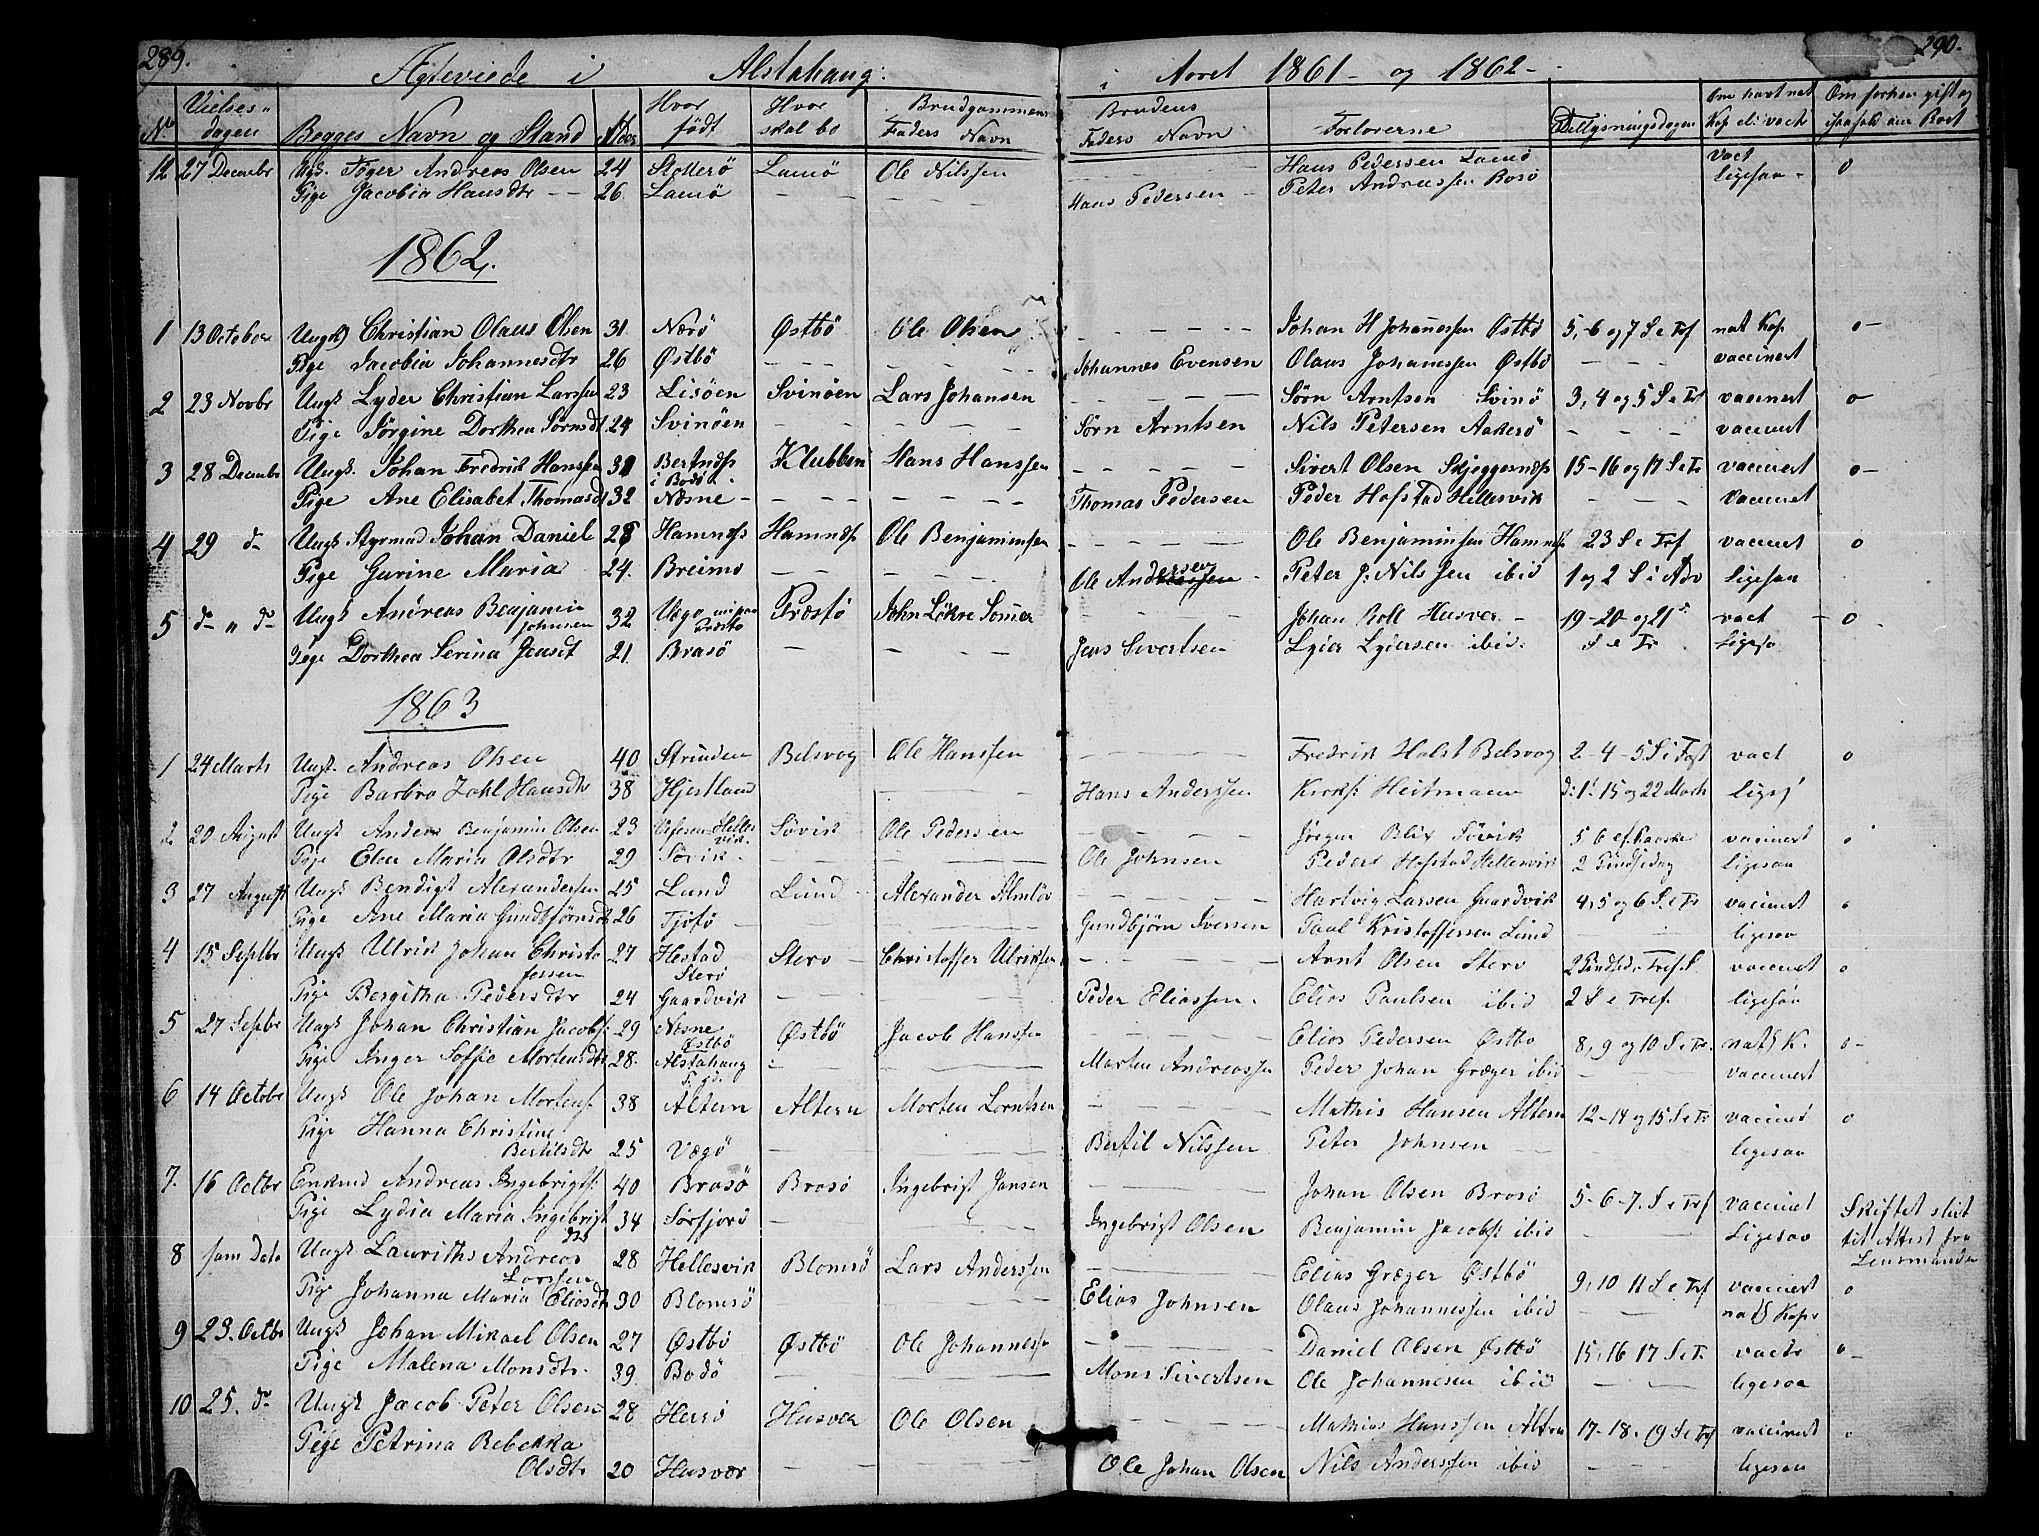 289.
290.
Ægteviede i Alstahaug. i Aaret 1861 - og 1862 -
No
Vielses-dagen
Begges Navn og Stand
Alder
Hvor født
Hvor skal bo
Brudgommens Faders Navn
Brudens Faders Navn
Forloverne
Tillysningsdagen
Om havt nat Kop el: vact
Om forhen gift og
12 27 Decembr Ugk. Andreas Olsen 24 Lamø Ole Nilssen - - - Hans Pedersen Lamø vact 0
Pige Jacobia Hansdtr - - 26 Lamø - - - Hans Pedersen - Peter Andreassen Rosø ligesaa -
1862.
1 13 October Ungk Christian Olaus Olsen 31. Nærö Østbö Ole Olsen - - - Johan H Johanessen Østbö 5,-6 og 7 S e Tref nat Kop 0 -
Pige Jacobia Johannesdtr 26 Østbö - - - Johannes Evensen Olaus Johanessen Østbö - - - vaccinert
2 23 Novbr Ungk Lyder Christian Larssen 23 Lisöen Svinöen Lars Johansen - - - Sörn Arntsen Svinö 3, 4 og 5 S e Tref vaccinert 0
Pige Sörgine Dorthea Sörnsdt. 24 Svinöen - - - Sörn Arntsen Nils Petersen Aakerö - - - vaccinert
3 28 Decembr Ungk. Johan Fredrik Hanssen 31 i Bodö Klubben Hans Hanssen - - - Sivert Olsen Skjeggesnæs 15-16 og 17 S e Tr vaccinert 0 -
Pige Ane Elisabet Thomasdt 32 Næsne - - - Thomas Pedersen Peder Hofstad Hellesvik - - - Vaccinert
4 29 d- Ungk Styrmand Johan Daniel 28 Hamnæs Hamnæs Ole Benjaminsen - - - Ole Benjaminsen Hamnæs 23 S e Tref vaccinert 0
Pige Gurine Maria 24. Breimo - - - Ole Andersen - Peter J. Nilssen ibid 1 og 2 S i Adv Ligesaa
5 d- " d- Ungk Andreas Benjamin Johnsen 32 Præstö - - Johan Roll Husver - 19-20- og 21 vact 0
Pige Dorthea Serina Jensdt 21. Brasö - - - Jens Sivertsen Lyder Lydersen ibid. S e Tr Ligesa
1863
1 24 Marts Ungk. Andreas Olsen 40 Strinden Belsvag Ole Hanssen - - - Fredrik Holst Belsvag 2-4-5 S i Fast vact 0
Pige Barbro Zahl Hansdtr 38 Hjertland - Hans Anderssen Kirks: Heitmann d: 1. 15 og 22 March
2 20 August Ungk Anders Benjamin Olsen 23 Hellesvik. Søvik Ole Pedersen - - - Jörgen Blix Søvik 5 6 ef. Paaske vaccinert 0
Pige Elen Maria Olsdtr 29 Søvik - - - Ole Johnsen Peder Hofstad Hellesvik 2 Pindsedag ligesaa
3 27 August Ungk Bendigt Alexandersen 25 Lund Lund Alexander Almlöv - - - Hartvig Larssen Gaardvik 4, 5 og 6 S e Tr vaccinert 0
Pige Ane Maria Gundbjörnsdt 26 Tjötö - - - Gundbjörn Iversen Paul Kristoffersen Lund - - - ligesaa
4 15 Septbr Ungk Ulrik Johan Christofessen 27 Hestad Sterö Stero - Christoffer Ulriksen - - - Arnt Olsen Stero 2 Pindsed. Tref. S. vaccinert 0
Pige Bergitha Pedersdtr 24 Gaardvik - - - Peder Eliassen. Elias Paulsen ibid 2 S e Tref. ligesaa
5 27 Septbr Ungk Johan Christian Jacobs: 29 Næsne Østbö Østbö Jacob Hanssen - - - Elias Pedersen Østbo 8, 9 og 10 S e Tr. natl K. 0 -
Pige Inger Soffie Mortensdtr 28. Alstahaug - - - Morten Andreassen Peder Johan Græger ibid - - - vaccinert
6 14 Octobr Ungk Ole Johan Mortens 38 Altern Altern Morten Lorntsen - - - Mathis Hansen Altern 12-14 og 15 S e Tr vaccinert 0
Pige Hanna Christine Bertilsdtr 25 Vægö - - - Bertil Nilssen Peter Johnsen - - - ligesaa
7. 16 Octbr Enkmd Andreas Ingebrigts: 40 Brasö Brasö Ingebrigt Jansen - - - Johan Olsen Brasö 5-6-7. S e Tref vaccinert Skiftet slut
Pige Lydia Maria Ingebrigtdtr 34 Sørfjord - - - Ingebrigt Olsen Benjamin Jacobs: ibid - - Ligesaa til Attest fra Lensmanden
8 sam Dato Ungk Lauriths Andreas Larssen 28 Hellesvik Blomsö Lars Anderssen - - - Elias Græger Østbö 9, 10 11 S e Tref vaccinert 0
Pige Johanna Maria Eliasdtr 30 Blomsö - - - Elias Johnsen Olaus Johannessen ibid - - natl Kopr
9 23. Octbr Ungk Johan Mikael Olsen 27 Østbö Østbö Ole Johannesse - - - Daniel Olsen Østbö 15, 16 17 S e T. vacte 0 -
Pige Malena Monsdtr. 39 Bodö - - - Mons Sivertsen Ole Johannesen ibid - - ligesaa
10 25. do Ungk Jacob Peter Olsen 28 Herrö Husver Ole Olsen - - - Mathias Hanssen Altern 17-18, 19 S e Tref vaccinert 0
Pige Petrina Rebekka Olsdtr 20 Husvær - - - Ole Johan Olsen Nils Anderssen ibid - - ligesaa